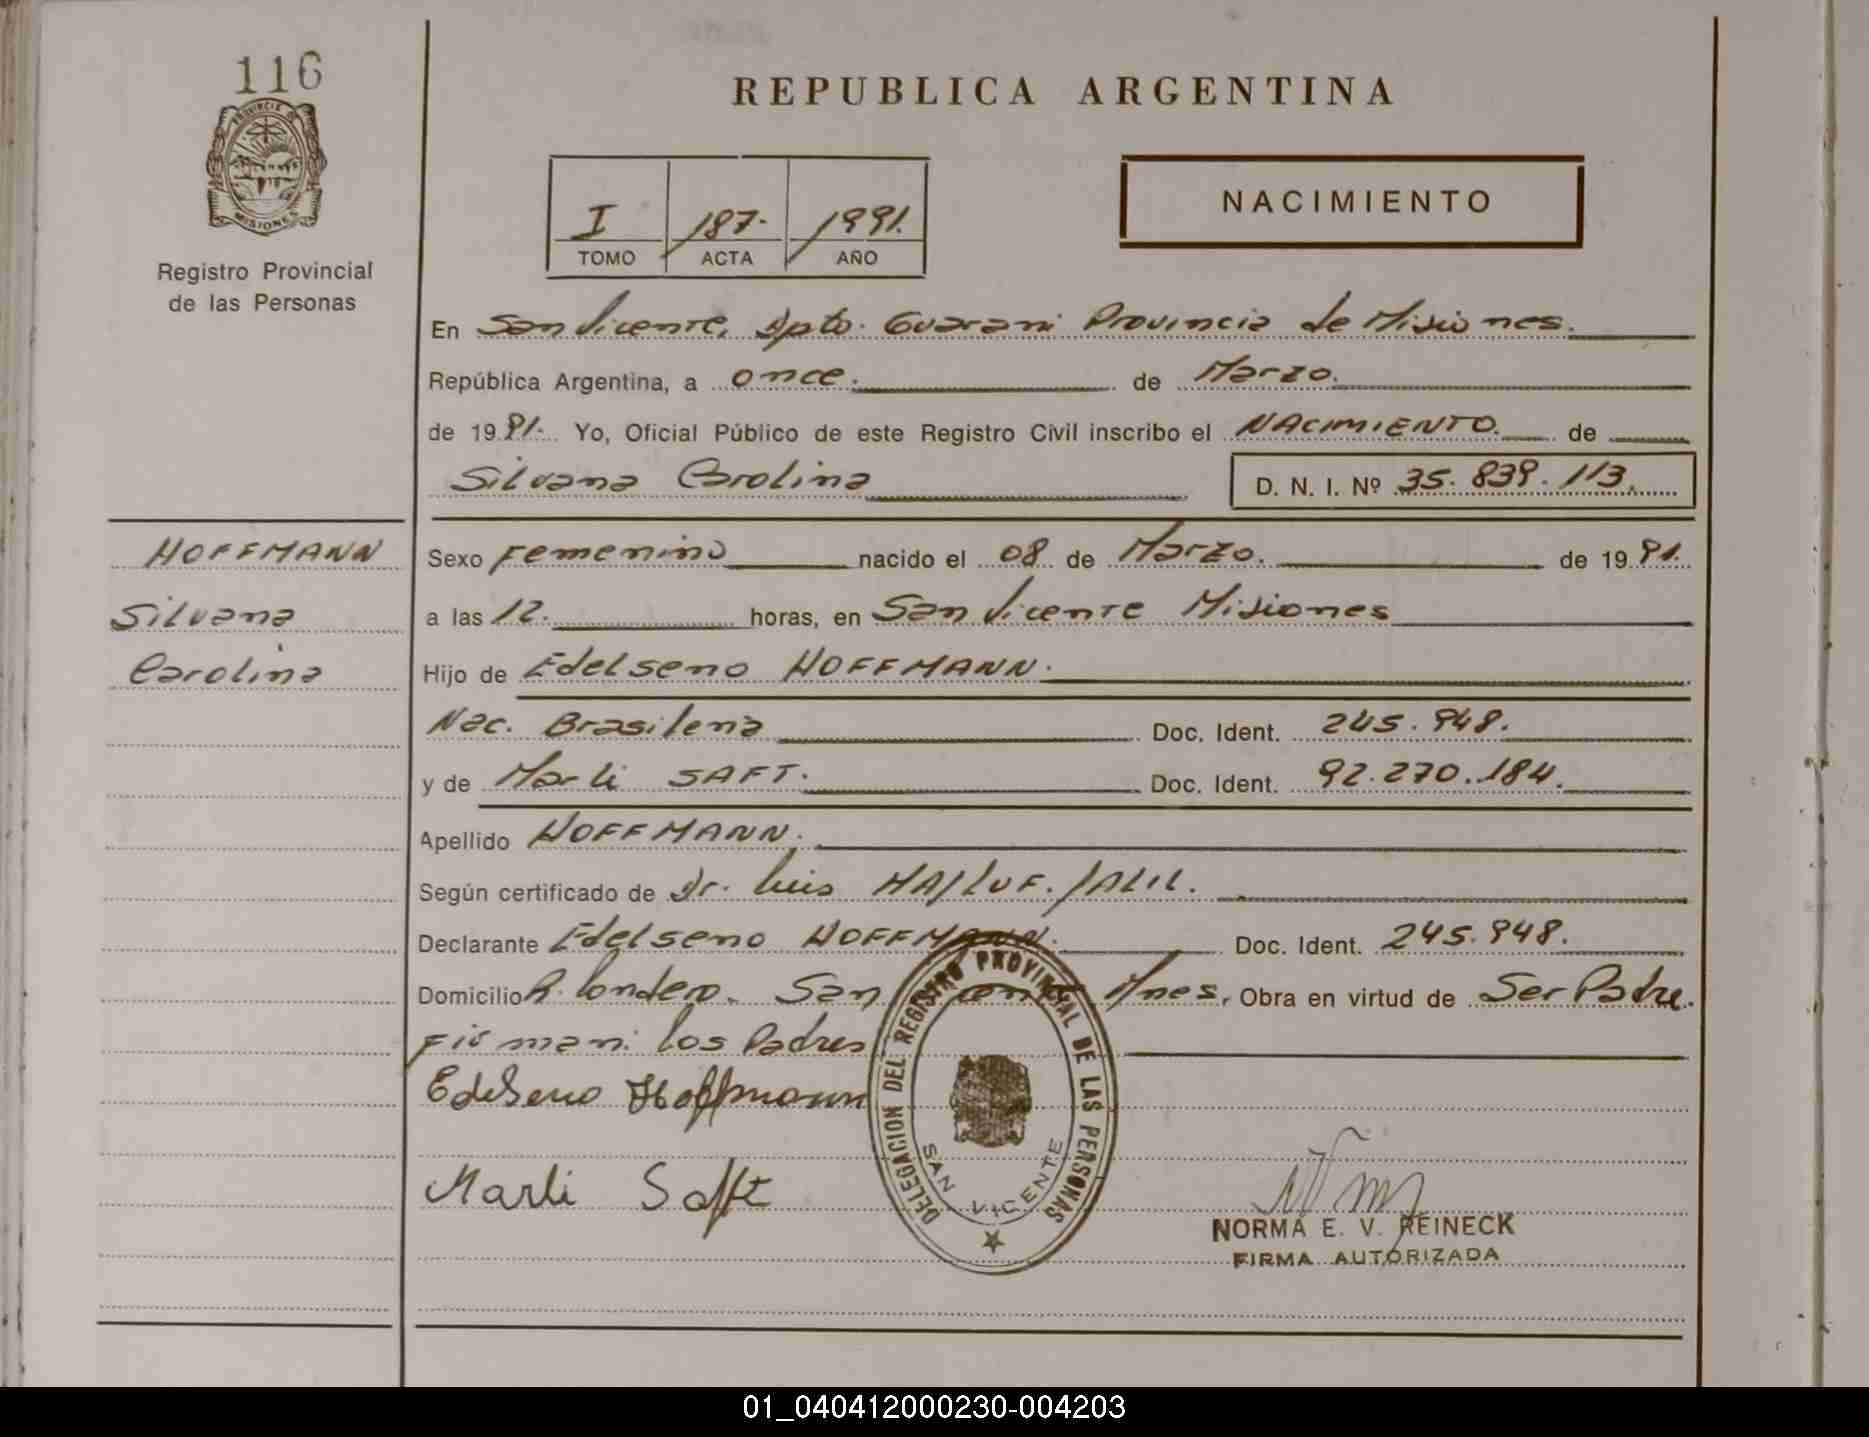 116
PROVINCIA DE
MISIONES
Registro Provincial
de las Personas
REPUBLICA ARGENTINA
I 187. 1991.
TOMO ACTA AÑO
NACIMIENTO
En San Vicente, Dpto. Guarani Provincia de Misiones.
República Argentina, a once. de Marzo.
de 1991. Yo, Oficial Público de este Registro Civil inscribo el NACIMIENTO. de
Silvana Carolina D. N. I. Nº 35.839.113.
HOFFMANN
Silvana
Carolina
Sexo Femenino nacido el 08 de Marzo. de 1991.
a las 12. horas, en San Vicente Misiones
Hijo de Edelseno HOFFMANN.
Nac. Brasileña Doc. Ident. 245.948.
y de Marli SAFT. Doc. Ident. 92.270.184.
Apellido HOFFMANN.
Según certificado de Dr. Luis MAJLUF. JALIL.
Declarante Edelseno HOFFMANN. Doc. Ident. 245.948.
Domicilio San Mnes, Obra en virtud de Ser Padre.
Firman: los Padres
Edelseno Hoffmann
Marli Saft
DELEGACION DEL REGISTRO PROVINCIAL DE LAS PERSONAS
SAN VICENTE
NORMA E. V. REINECK
FIRMA AUTORIZADA
01_040412000230-004203